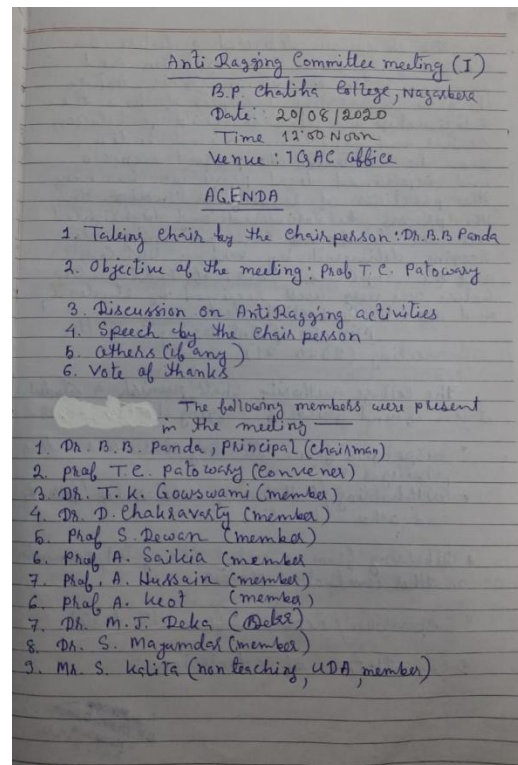 Anti Ragging Committee meeting (I)
B.P. Chaliha College, Nagarbera
Date: 20/08/2020
Time 12:00 Noon
Venue : IQAC office
AGENDA
1. Taking chair by the chairperson: Dr. B.B Panda
2. Objective of the meeting: Prof T. C. Patowary
3. Discussion on Anti Ragging activities
4. Speech by the chair person
5. Others (if any)
6. Vote of thanks
The following members were present
in the meeting —
1. Dr. B. B. Panda, Principal (chairman)
2. Prof T. C. Patowary (Convener)
3. Dr. T. K. Gowswami (member)
4. Dr. D. Chakravarty (member)
5. Prof S. Dewan (member)
6. Prof A. Saikia (member
7. Prof. A. Hussain (member)
6. Prof A. Keot (member)
7. Dr. M. J. Deka
8. Dr. S. Mazumdar (member)
9. Mr. S. Kalita (non teaching, UDA, member)